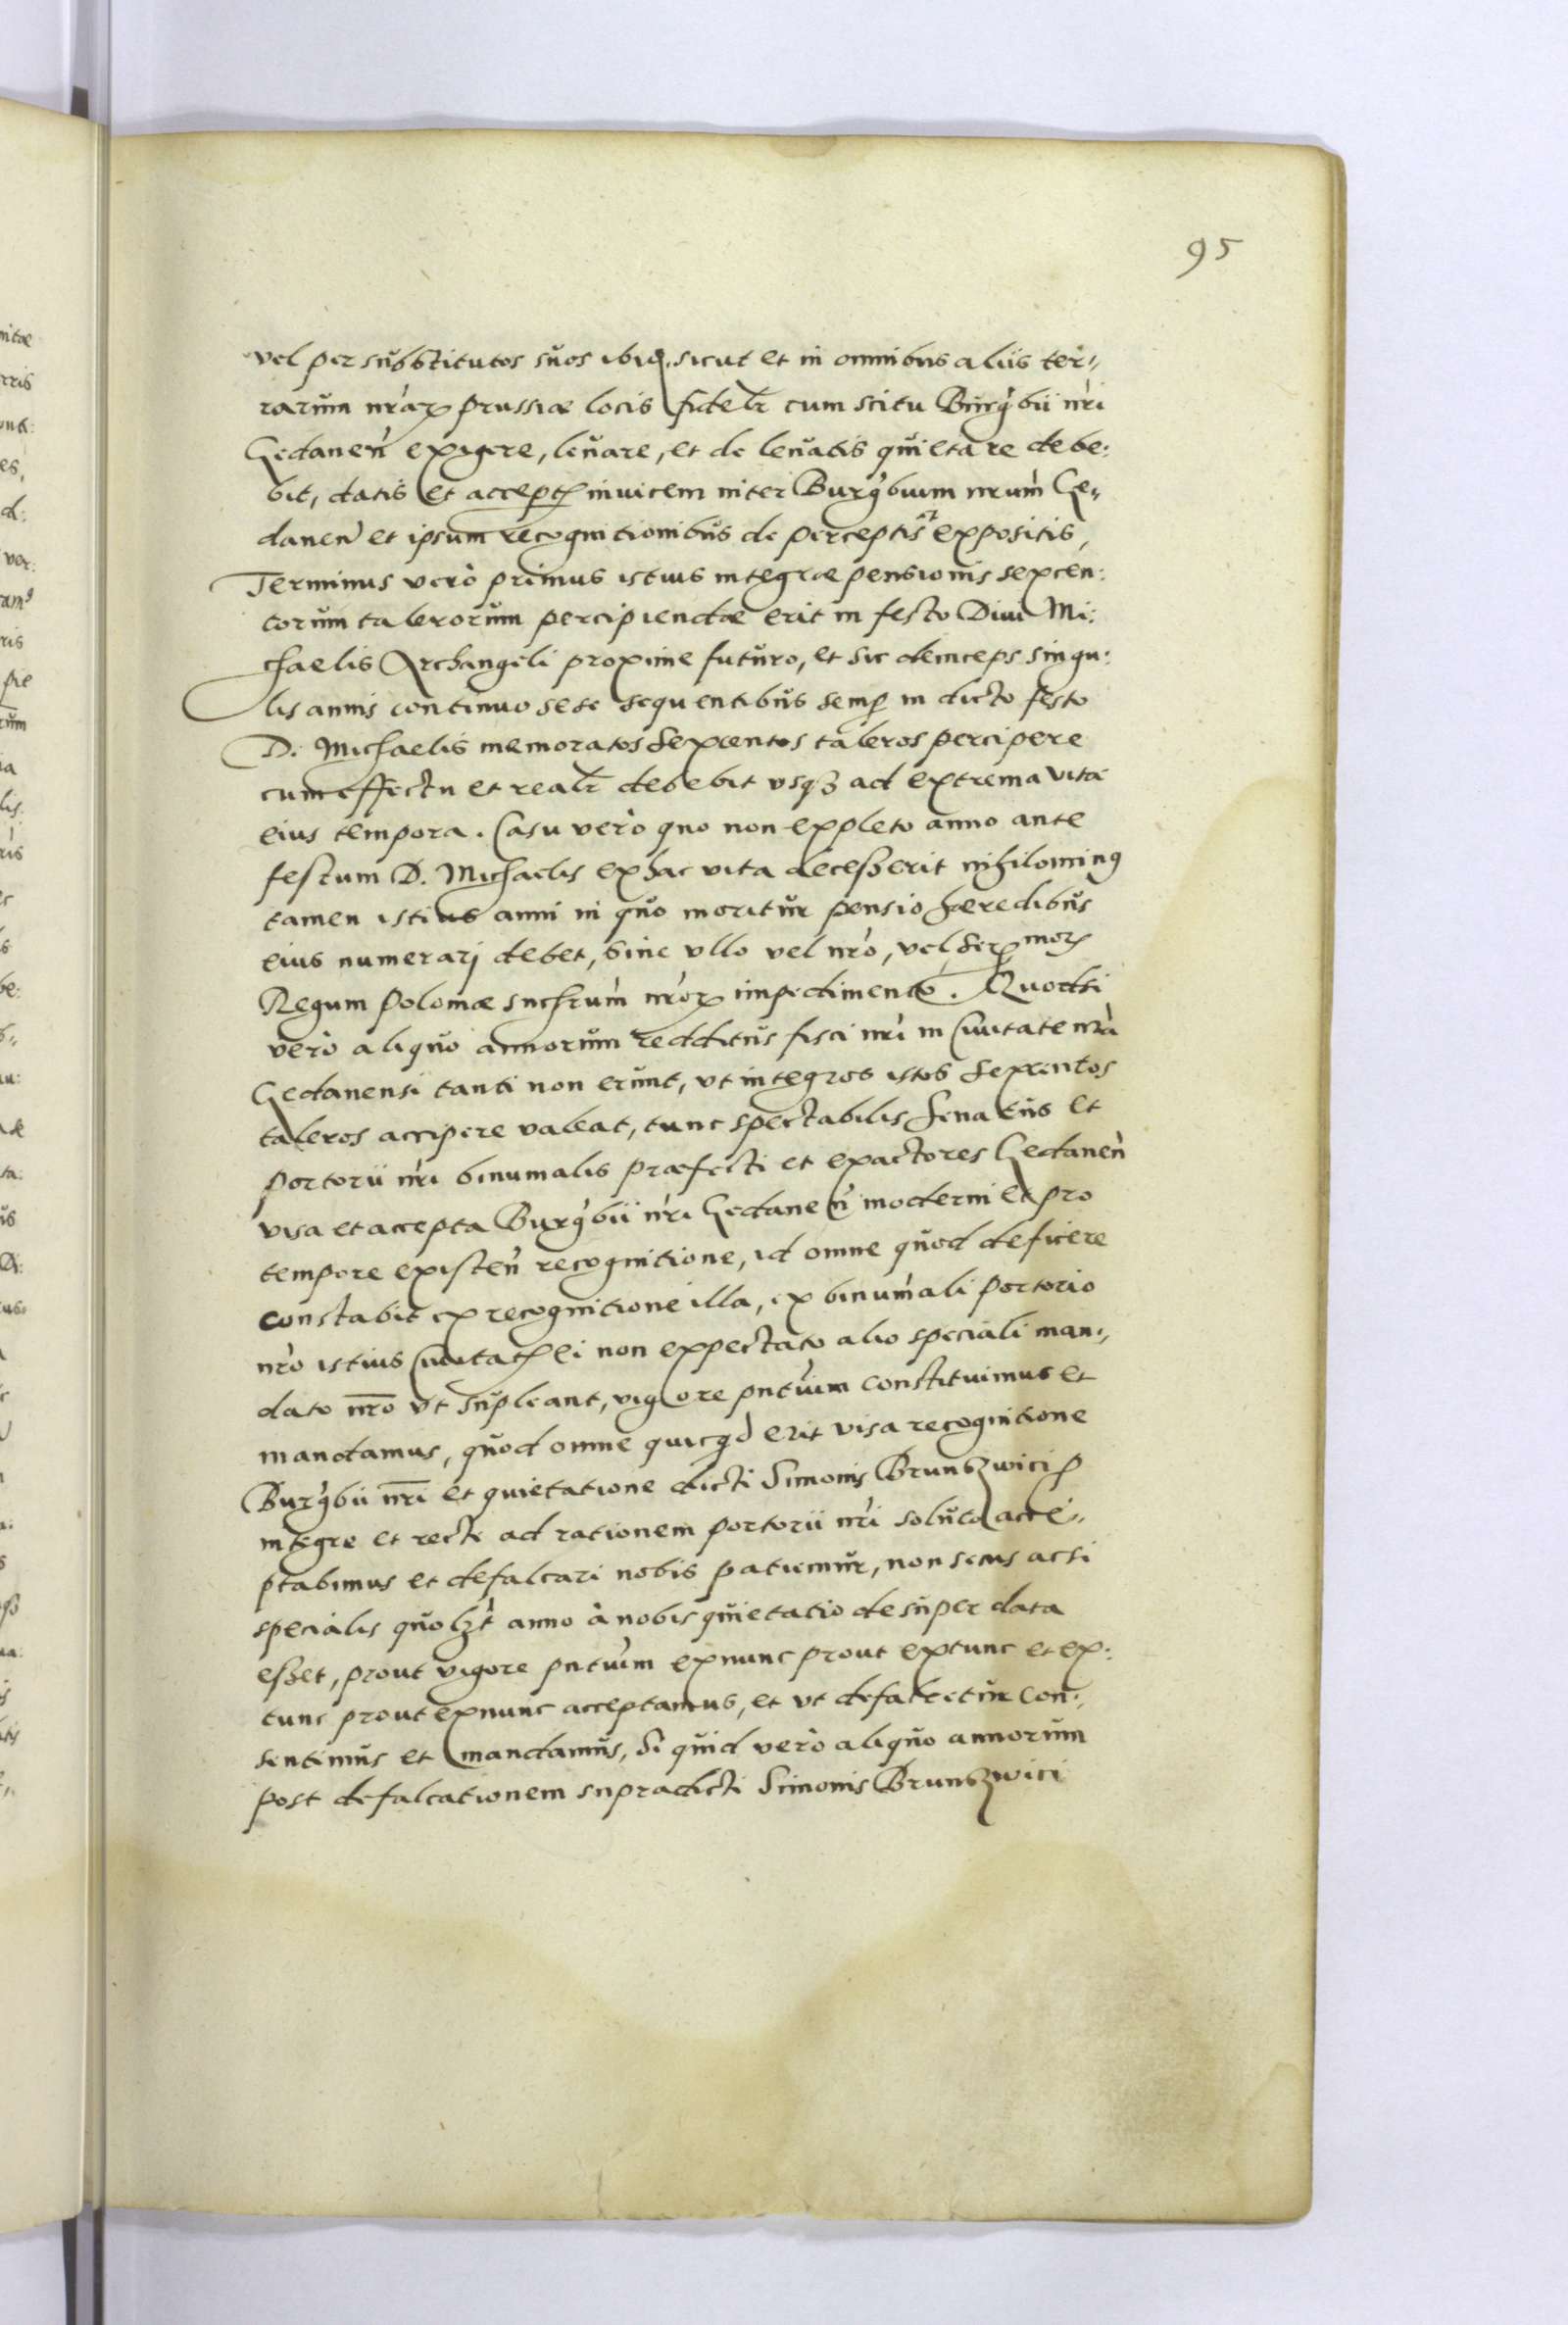 95
vel per substitutos suos ibiq. sicut et in omnibus aliis ter„
rarum nrarꝝ prussiae locis fidelr cum scitu Burgbii nri
Gedanen exigere, levare, et de levatis quietare debe:
bit, datis et acceptꝭ invicem inter Burgbium nrum Ge„
danen et ipsum recognitionibus de perceptis et expositis,
Terminus vero primus istius integrae pensionis sexcen:
torum talerorum percipiendae erit in festo Divi Mi:
chaelis Archangeli proxime futuro, et sic deinceps singu:
lis annis continuo sese sequentibus semꝑ in dicto festo
D. Michaelis memoratos sexcentos taleros percipere
cum effectu et realr debebit usqꝫ ad extrema vitae
eius tempora. Casu vero quo non expleto anno ante
festum D. Michaelis ex hac vita decesserit nihilominꝰ
tamen istius anni in quo moritur pensio haeredibus
eius numerarj debet, sine ullo vel nro, vel serꝫmorꝫ
Regum Poloniae suchrum nrorꝝ impedimento. Quodsi
vero aliquo annorum redditus fisci nri in Civitate nra
Gedanensi tanti non erunt, ut integros istos sexcentos
taleros accipere valeat, tunc spectabilis senatus et
portorii nri binumalis praefecti et exactores Gedanen
visa et accepta Burgbii nri Gedanen moderni et pro
tempore existen recognitione, id omne quod deficere
constabit ex recognitione illa, ex binumali portorio
nro istius Civitatꝭ ei non expectato alio speciali man„
dato nro ut supleant, vigore pntium constituimus et
mandamus, quod omne quicqd erit visa recognitione
Burgbii nri et quietatione dicti Simonis Bruntzwici ꝑ
integre et recte ad rationem portorii nri soluto acce„
ptabimus et defalcari nobis patiemur, non secus acsi
specialis quolꝫt anno à nobis quietatio desuper data
esset, prout vigore pntium exnunc prout extunc et ex:
tunc prout exnunc acceptamus, et ut defalcetur con„
sentimus et mandamus, Si quid vero aliquo annorum
post defalcationem supradicti Simonis Bruntzwici